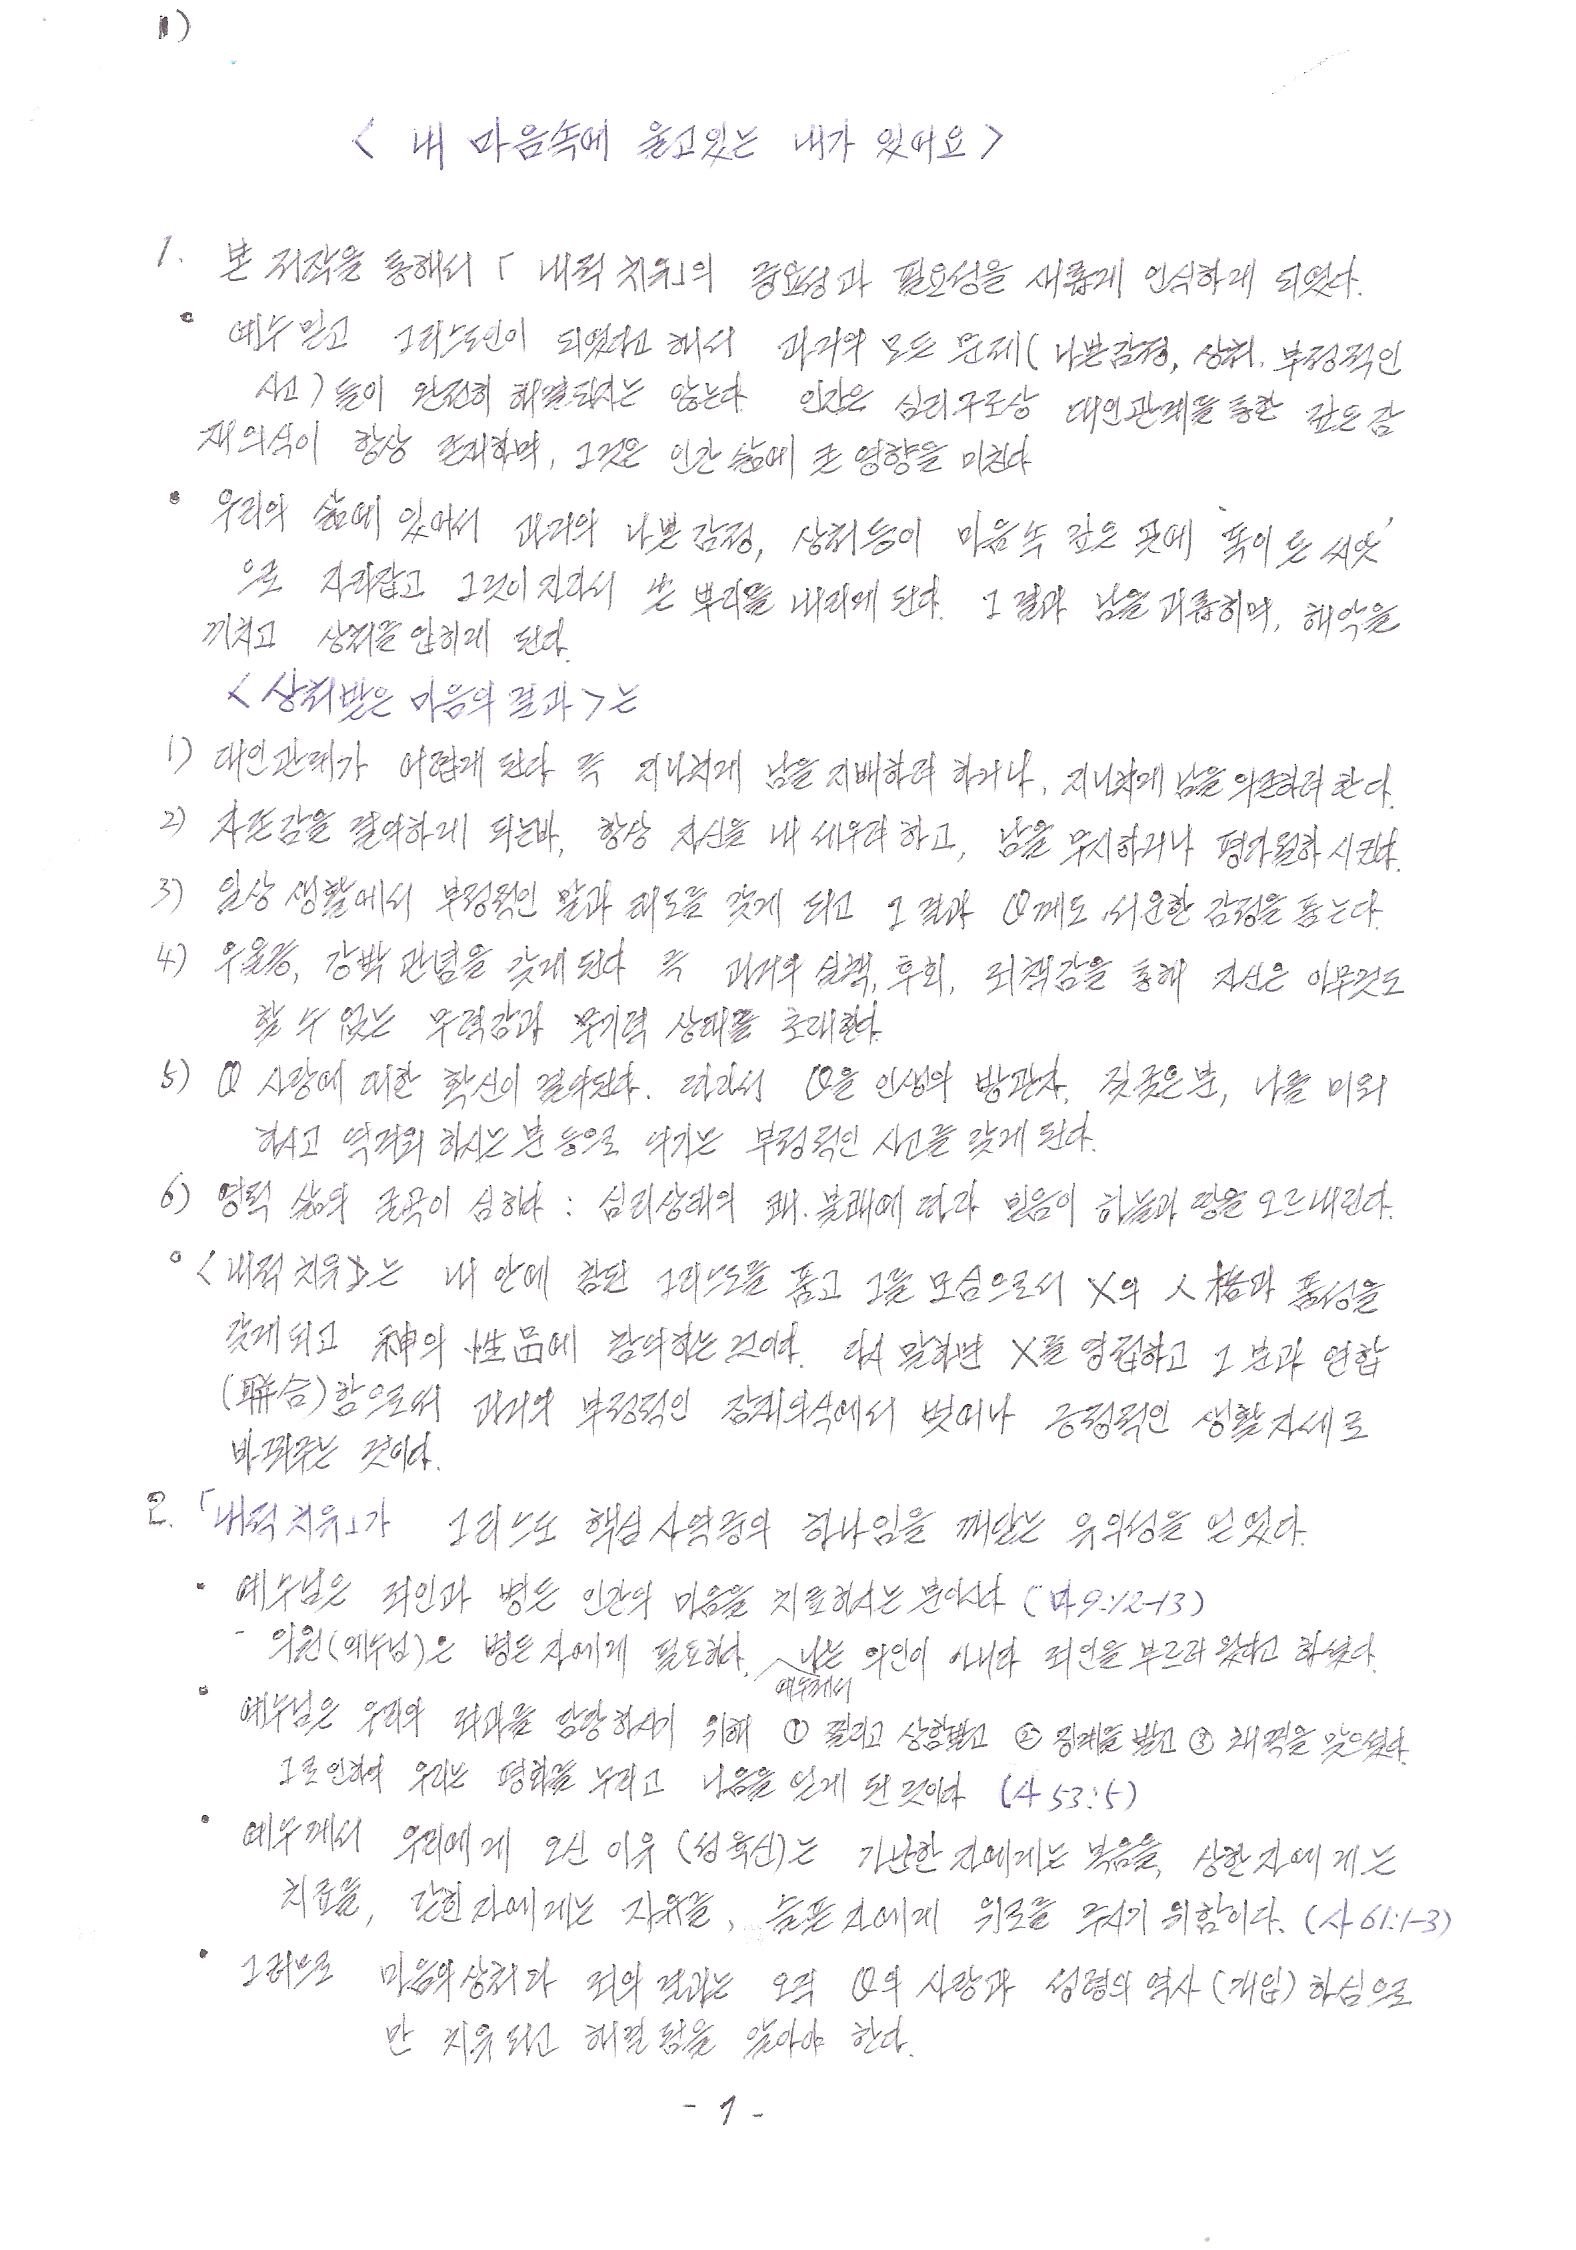 1)
< 내 마음속에 울고있는 내가 있어요 >
1. 본 저작을 통해서 「내적 치유」의 중요성과 필요성을 새롭게 인식하게 되었다.
• 예수 믿고 그리스도인이 되었다고 해서 과거의 모든 문제( 나쁜감정, 상처, 부정적인
사고 ) 들이 완전히 해결되지는 않는다 인간은 심리구조상 대인관계를 통한 깊은 잠
재의식이 항상 존재하며, 그것은 인간 삶에 큰 영향을 미친다
• 우리의 삶에 있어서 과거의 나쁜 감정, 상처등이 마음속 깊은 곳에 '독이 든 씨앗'
으로 자리잡고 그것이 자라서 쓴 뿌리를 내리게 된다. 그 결과 남을 괴롭히며, 해악을
끼치고 상처를 입히게 된다.
<상처받은 마음의 결과>는
1) 대인관계가 어렵게 된다 즉 지나치게 남을 지배하려 하거나, 지나치게 남을 의존하려 한다.
2) 자존감을 결여하게 되는바, 항상 자신을 내 세우려 하고, 남을 무시하거나 평가절하 시킨다.
3) 일상 생활에서 부정적인 말과 태도를 갖게 되고 그 결과 께도 서운한 감정을 품는다.
4) 우울증, 강박 관념을 갖게 된다 즉 과거의 실책, 후회, 죄책감을 통해 자신은 아무것도
할 수 없는 무력감과 무기력 상태를 초래한다.
5) 사랑에 대한 확신이 결여된다. 따라서 을 인생의 방관자, 짓궂은 분, 나를 미워
하시고 역겨워 하시는 분 등으로 여기는 부정적인 사고를 갖게 된다.
6) 영적 삶의 굴곡이 심하다 : 심리상태의 쾌. 불쾌에 따라 믿음이 하늘과 땅을 오르내린다.
• <내적 치유>는 내 안에 참된 그리스도를 품고 그를 모심으로서 X의 人格과 품성을
갖게 되고 神의 性品에 참여하는 것이다. 다시 말하면 X를 영접하고 그 분과 연합
(聯合)함으로써 과거의 부정적인 잠재의식에서 벗어나 긍정적인 생활 자세로
바꿔주는 것이다.
2. 「내적 치유」가 그리스도 핵심 사역중의 하나임을 깨닫는 유의성을 얻었다.
• 예수님은 죄인과 병든 인간의 마음을 치료하시는 분이시다 (마 9:12-13)
- 의원(예수님)은 병든 자에게 필요하다. 예수께서 나는 의인이 아니라 죄인을 부르러 왔다고 하셨다.
• 예수님은 우리의 죄과를 담당하시기 위해 ① 찔리고 상함받고 ② 징계를 받고 ③ 채찍을 맞으셨다.
그로 인하여 우리는 평화를 누리고 나음을 얻게 된 것이다 (사 53:5)
• 예수께서 우리에게 오신 이유 (성육신)는 가난한 자에게는 복음을, 상한 자에게는
치료를, 갇힌 자에게는 자유를, 슬픈 자에게 위로를 주시기 위함이다. (사 61:1-3)
• 그러므로 마음의 상처와 죄의 결과는 오직 의 사랑과 성령의 역사 (개입) 하심으로
만 치유되고 해결됨을 알아야 한다.
- 1 -